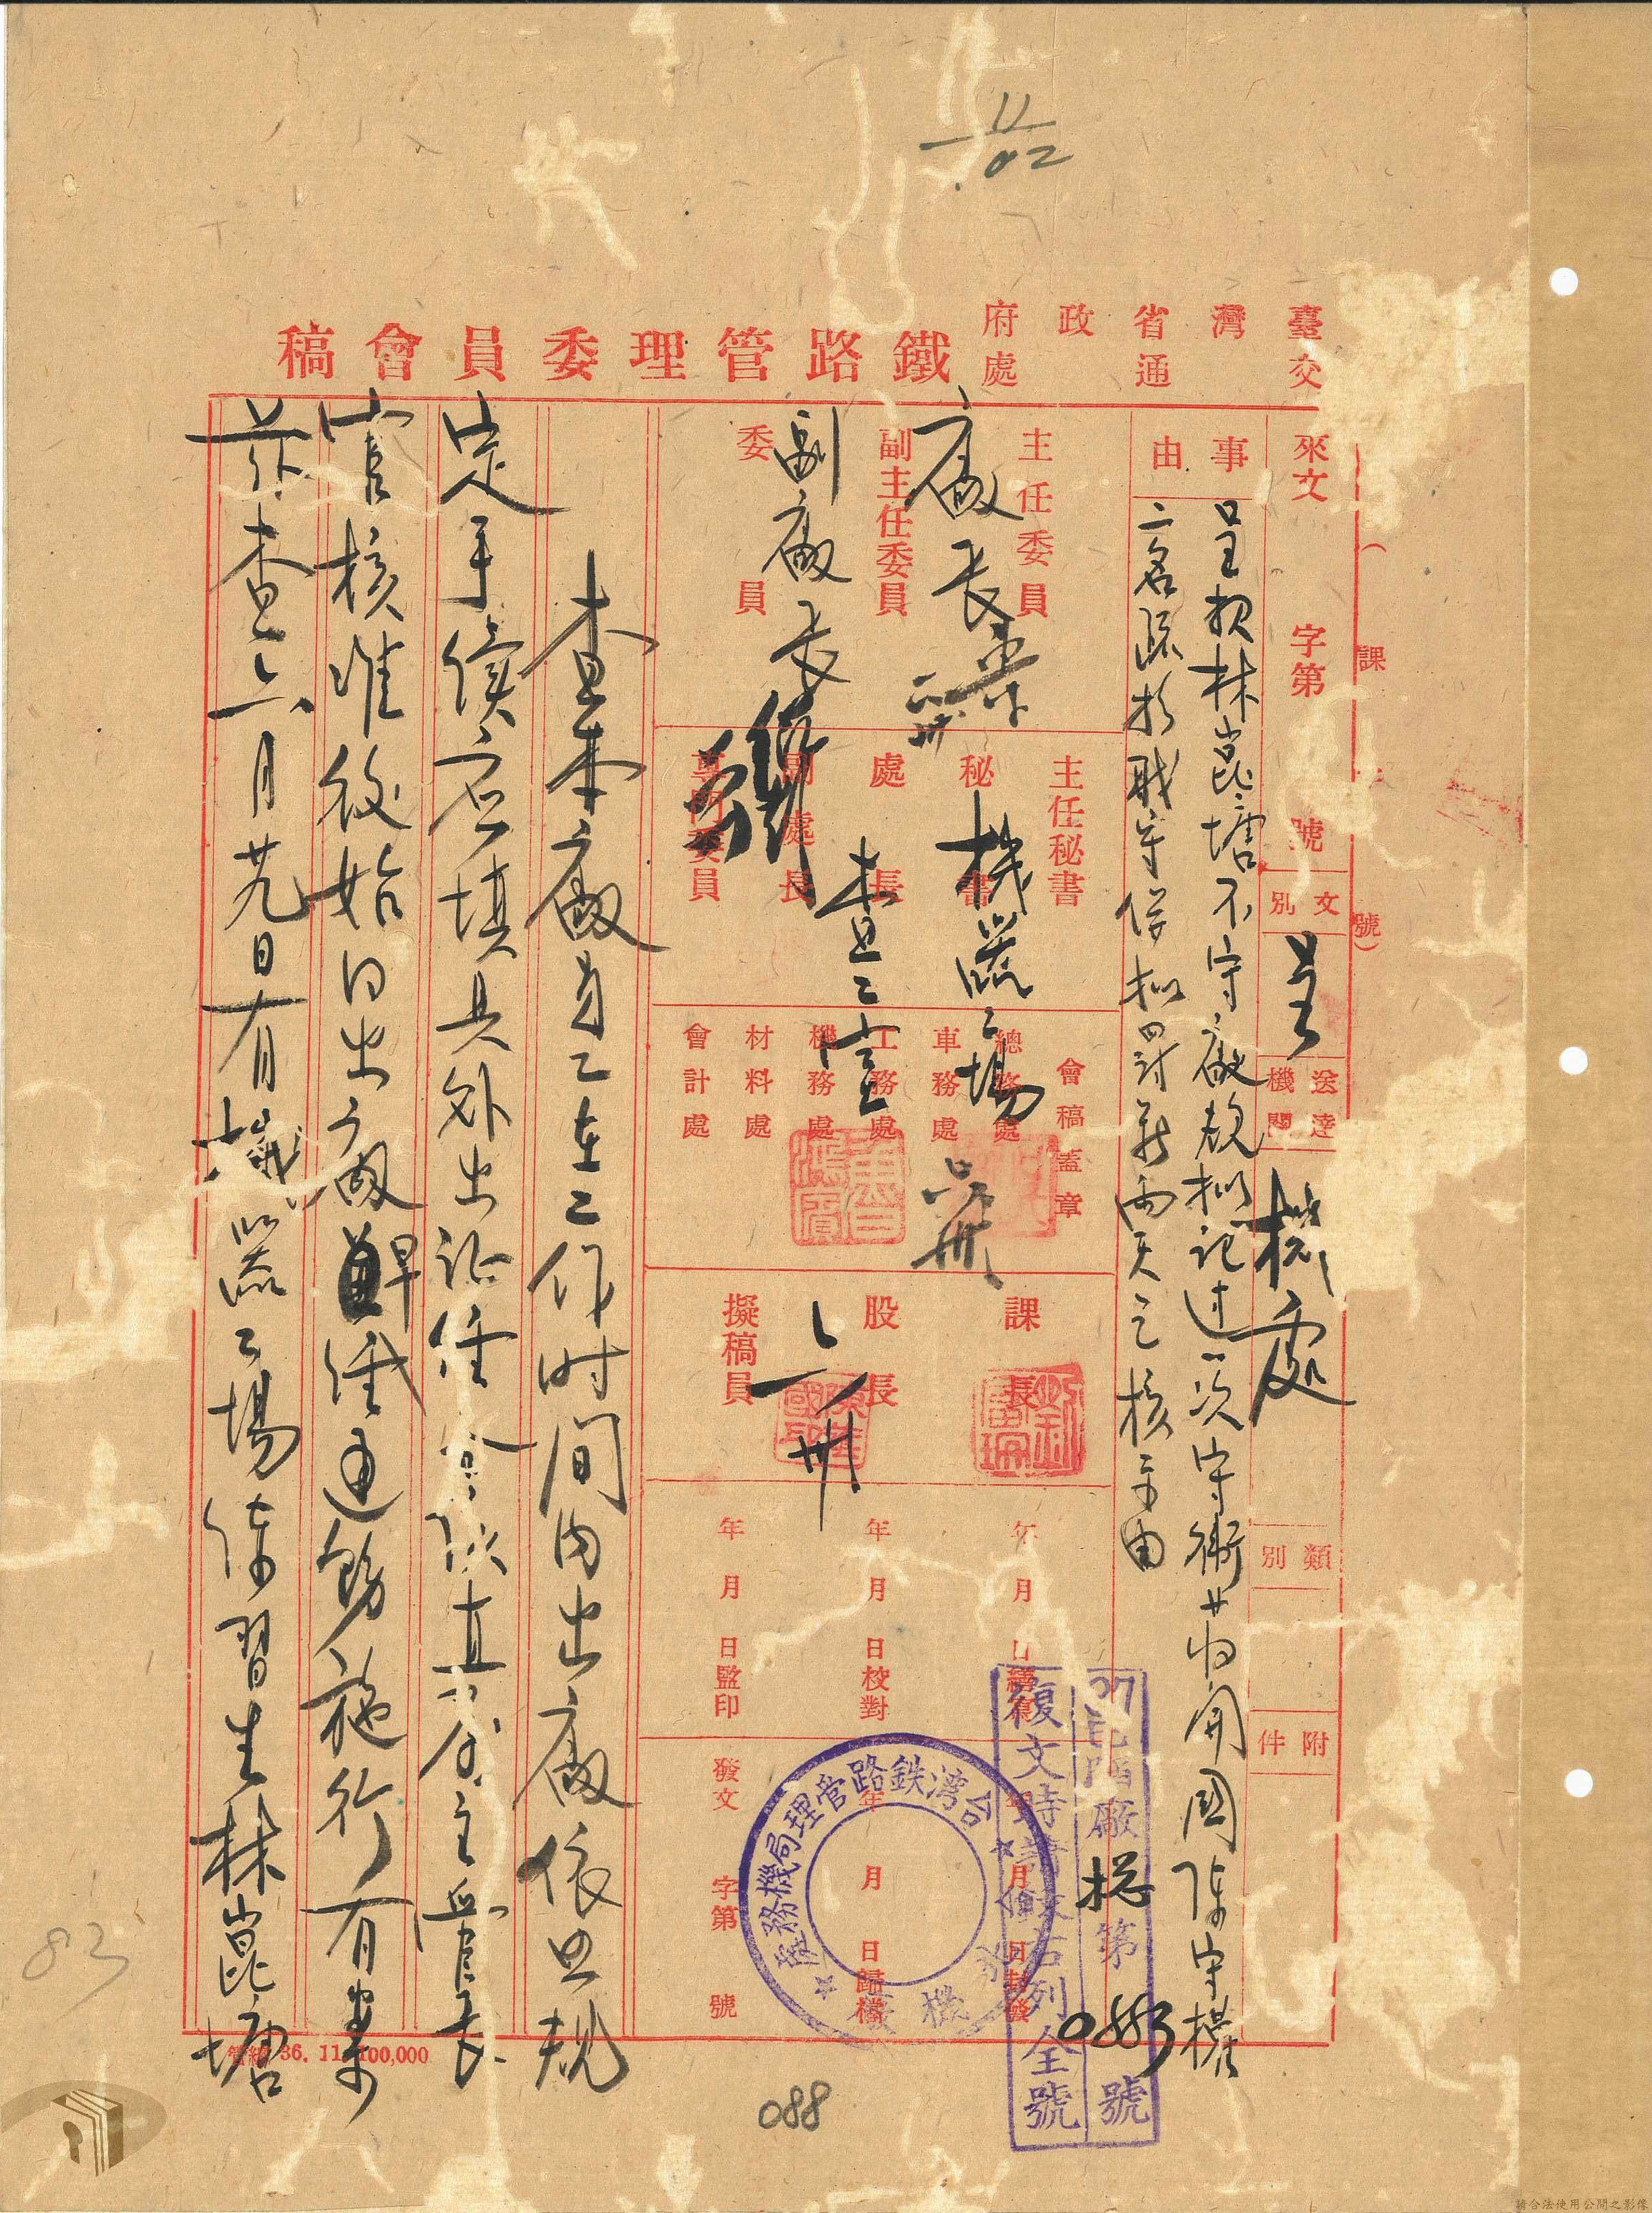 11/02
臺灣省政府
交通處
鐵路管理委員會稿
課
號)
來文 字第 號
文別
呈
送達機關
機處
類別
附件
事由
呈報林崑塘不守廠規擬記過一次守衛黃開國陳守樸
二名疏於職守俸擬罰薪兩天之核示由
主任委員
副主任委員
委員
廠長
副廠長
主任秘書
秘書
處長
副處長
專門委員
機器工場
查工室
會稿蓋章
總務處
車務處
工務處
機務處
材料處
會計處
課長
股長
擬稿員
年 月 日繕寫
年 月 日校對
年 月 日監印
年 月 日封發
年 月 日歸檔
發文 字第 號
37北階廠 第 號
復文時請書右列全號
台灣鉄路管理局機務處
查本廠員工在工作时间内出廠依照規
定手續应填具外出証經 直屬主管長
官核准後始可出廠 經通飭施行有案
茲查六月廿九日有機器工場練習生林崑塘
管統 36. 11. 100,000
088
83
請合法使用公開之影像